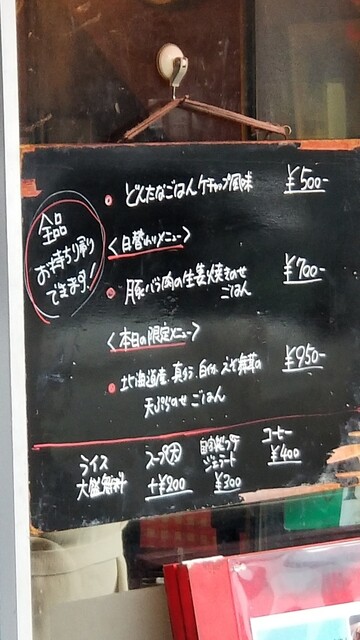 全品
お持ち帰り
できます!
どんたなごはんケチャップ風味 ¥500-
〈日替わりメニュー〉
豚バラ肉の生姜焼きのせ
ごはん ¥700-
〈本日の限定メニュー〉
北海道産 真だら 白子 えぞ舞茸の
天ぷらのせ ごはん ¥950-
ライス
大盛無料
スープ大
+¥200
自家製プチ
ジェラート
¥300
コーヒー
¥400